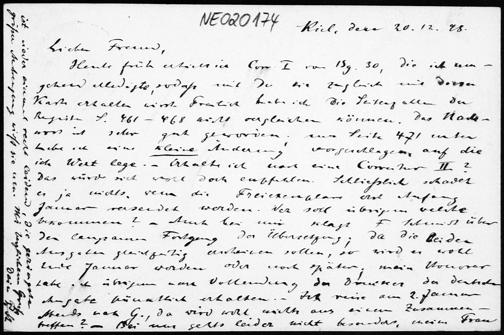 NE020174
Kiel, den 20.12.28.
Lieber Freund,
Heute früh erhielt ich Corr. I von Bg. 30, die ich um-
gehend erledigte, sodass mit Du sie zugleich mit dieser
Karte erhalten wirst. Freilich habe ich die Seitenzahlen der
Register S. 461 – 468 nicht vergleichen können. Das Nach-
wort ist sehr gut geworden, nur Seite 471 unten
habe ich eine kleine Änderung vorgeschlagen, auf die
ich Wert lege. – Erhalte ich noch eine Correctur II?
Das würde sich wohl doch empfehlen. Schliesslich schadet
es ja nichts, wenn die Freiexemplare erst Anfang
Januar versendet werden. Wer soll übrigens welche
bekommen? – Auch bei mir klagt F. Schmidt über
den langsamen Fortgang der Übersetzung; da die beiden
Ausgaben gleichzeitig erscheinen sollen, so wird es wohl
Ende Januar werden oder noch später; mein Honorar
habe ich übrigens nach Vollendung des Druckes der deutschen
Ausgabe pünktlich erhalten. – Ich reise am 2. Januar
Abends nach G., da wird wohl nichts aus einem Zusammen-
treffen? – Bei uns geht's leider nicht besonders, meine Frau
ist wieder einmal recht leidend
Mit herzlichem Gruß
Dein